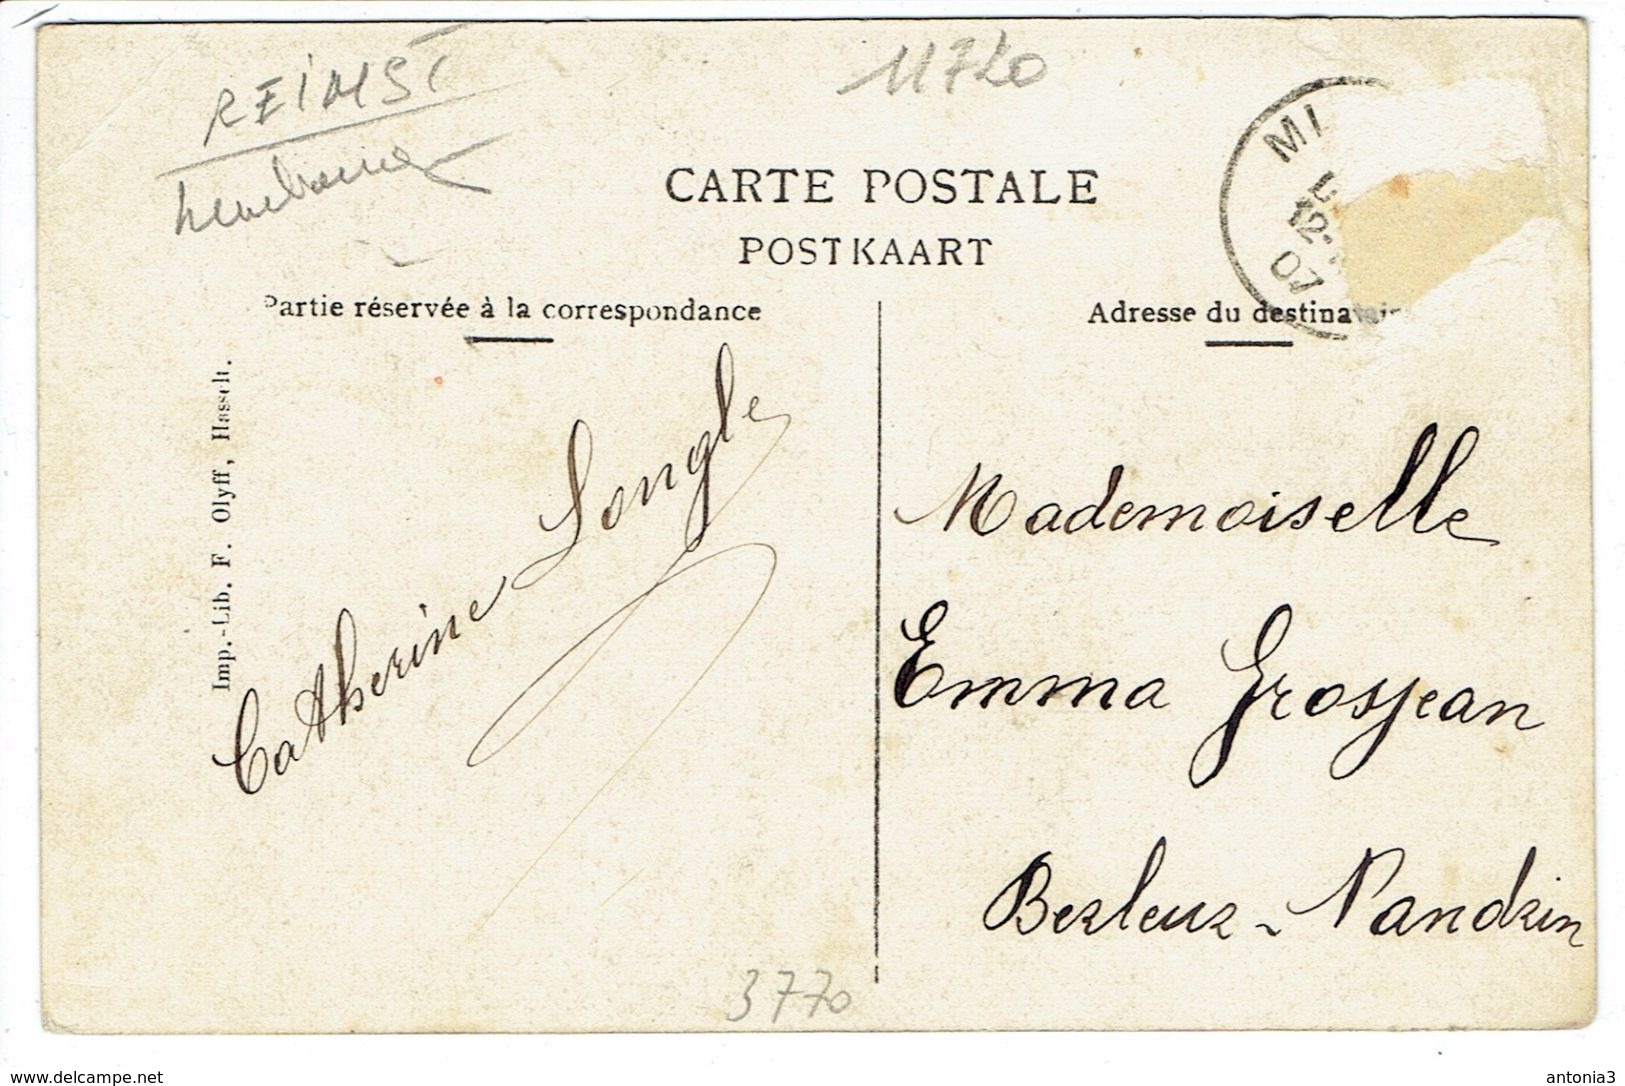 REIMST
11720
MI
5
12-
07
CARTE POSTALE
POSTKAART
Partie réservée à la correspondance
Adresse du destinatair
Imp.-Lib. F. Olyff, Hasselt.
Catherine Longle
Mademoiselle
Emma Grosjean
Berleur - Nandrin
3770
www.delcampe.net
antonia3